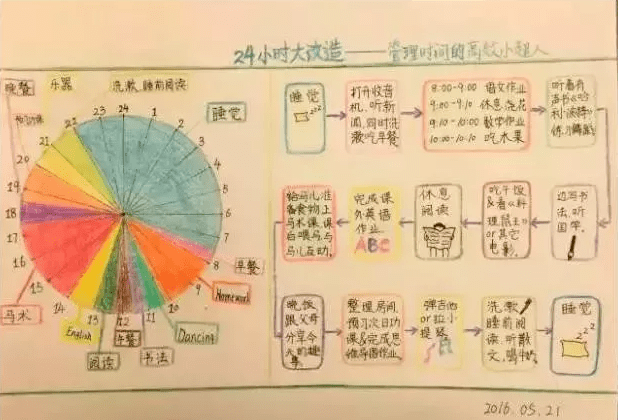 24小时大改造——管理时间的高效小超人
晚餐
乐器
洗漱,睡前阅读
睡觉
预习功课
24
23
22
21
20
19
18
17
16
15
14
13
12
11
10
9
8
7
6
5
4
3
2
1
早餐
Homework
Dancing
书法
午餐
阅读
English
马术
睡觉
zzz
打开收音
机,听新
闻,同时洗
漱吃早餐
8:00-9:00 语文作业
9:00-9:10 休息,浇花
9:10-10:00 数学作业
10:00-10:10 吃水果
听着有
声书《哈
利·波特》
练习舞蹈
边写书
法,听
国学。
吃午饭
&看《料
理鼠王》
or其它
电影。
休息
阅读
完成课
外英语
作业
ABC
给马儿准
备食物上
马术课,课
后喂马与
马儿互动。
晚饭
跟父母
分享今
天的趣
事。
整理房间,
预习次日功
课&完成思
维导图作业。
弹吉他
or拉小
提琴
洗漱
睡前阅
读,听散
文,喝牛奶
睡觉
zzz
2016.05.21